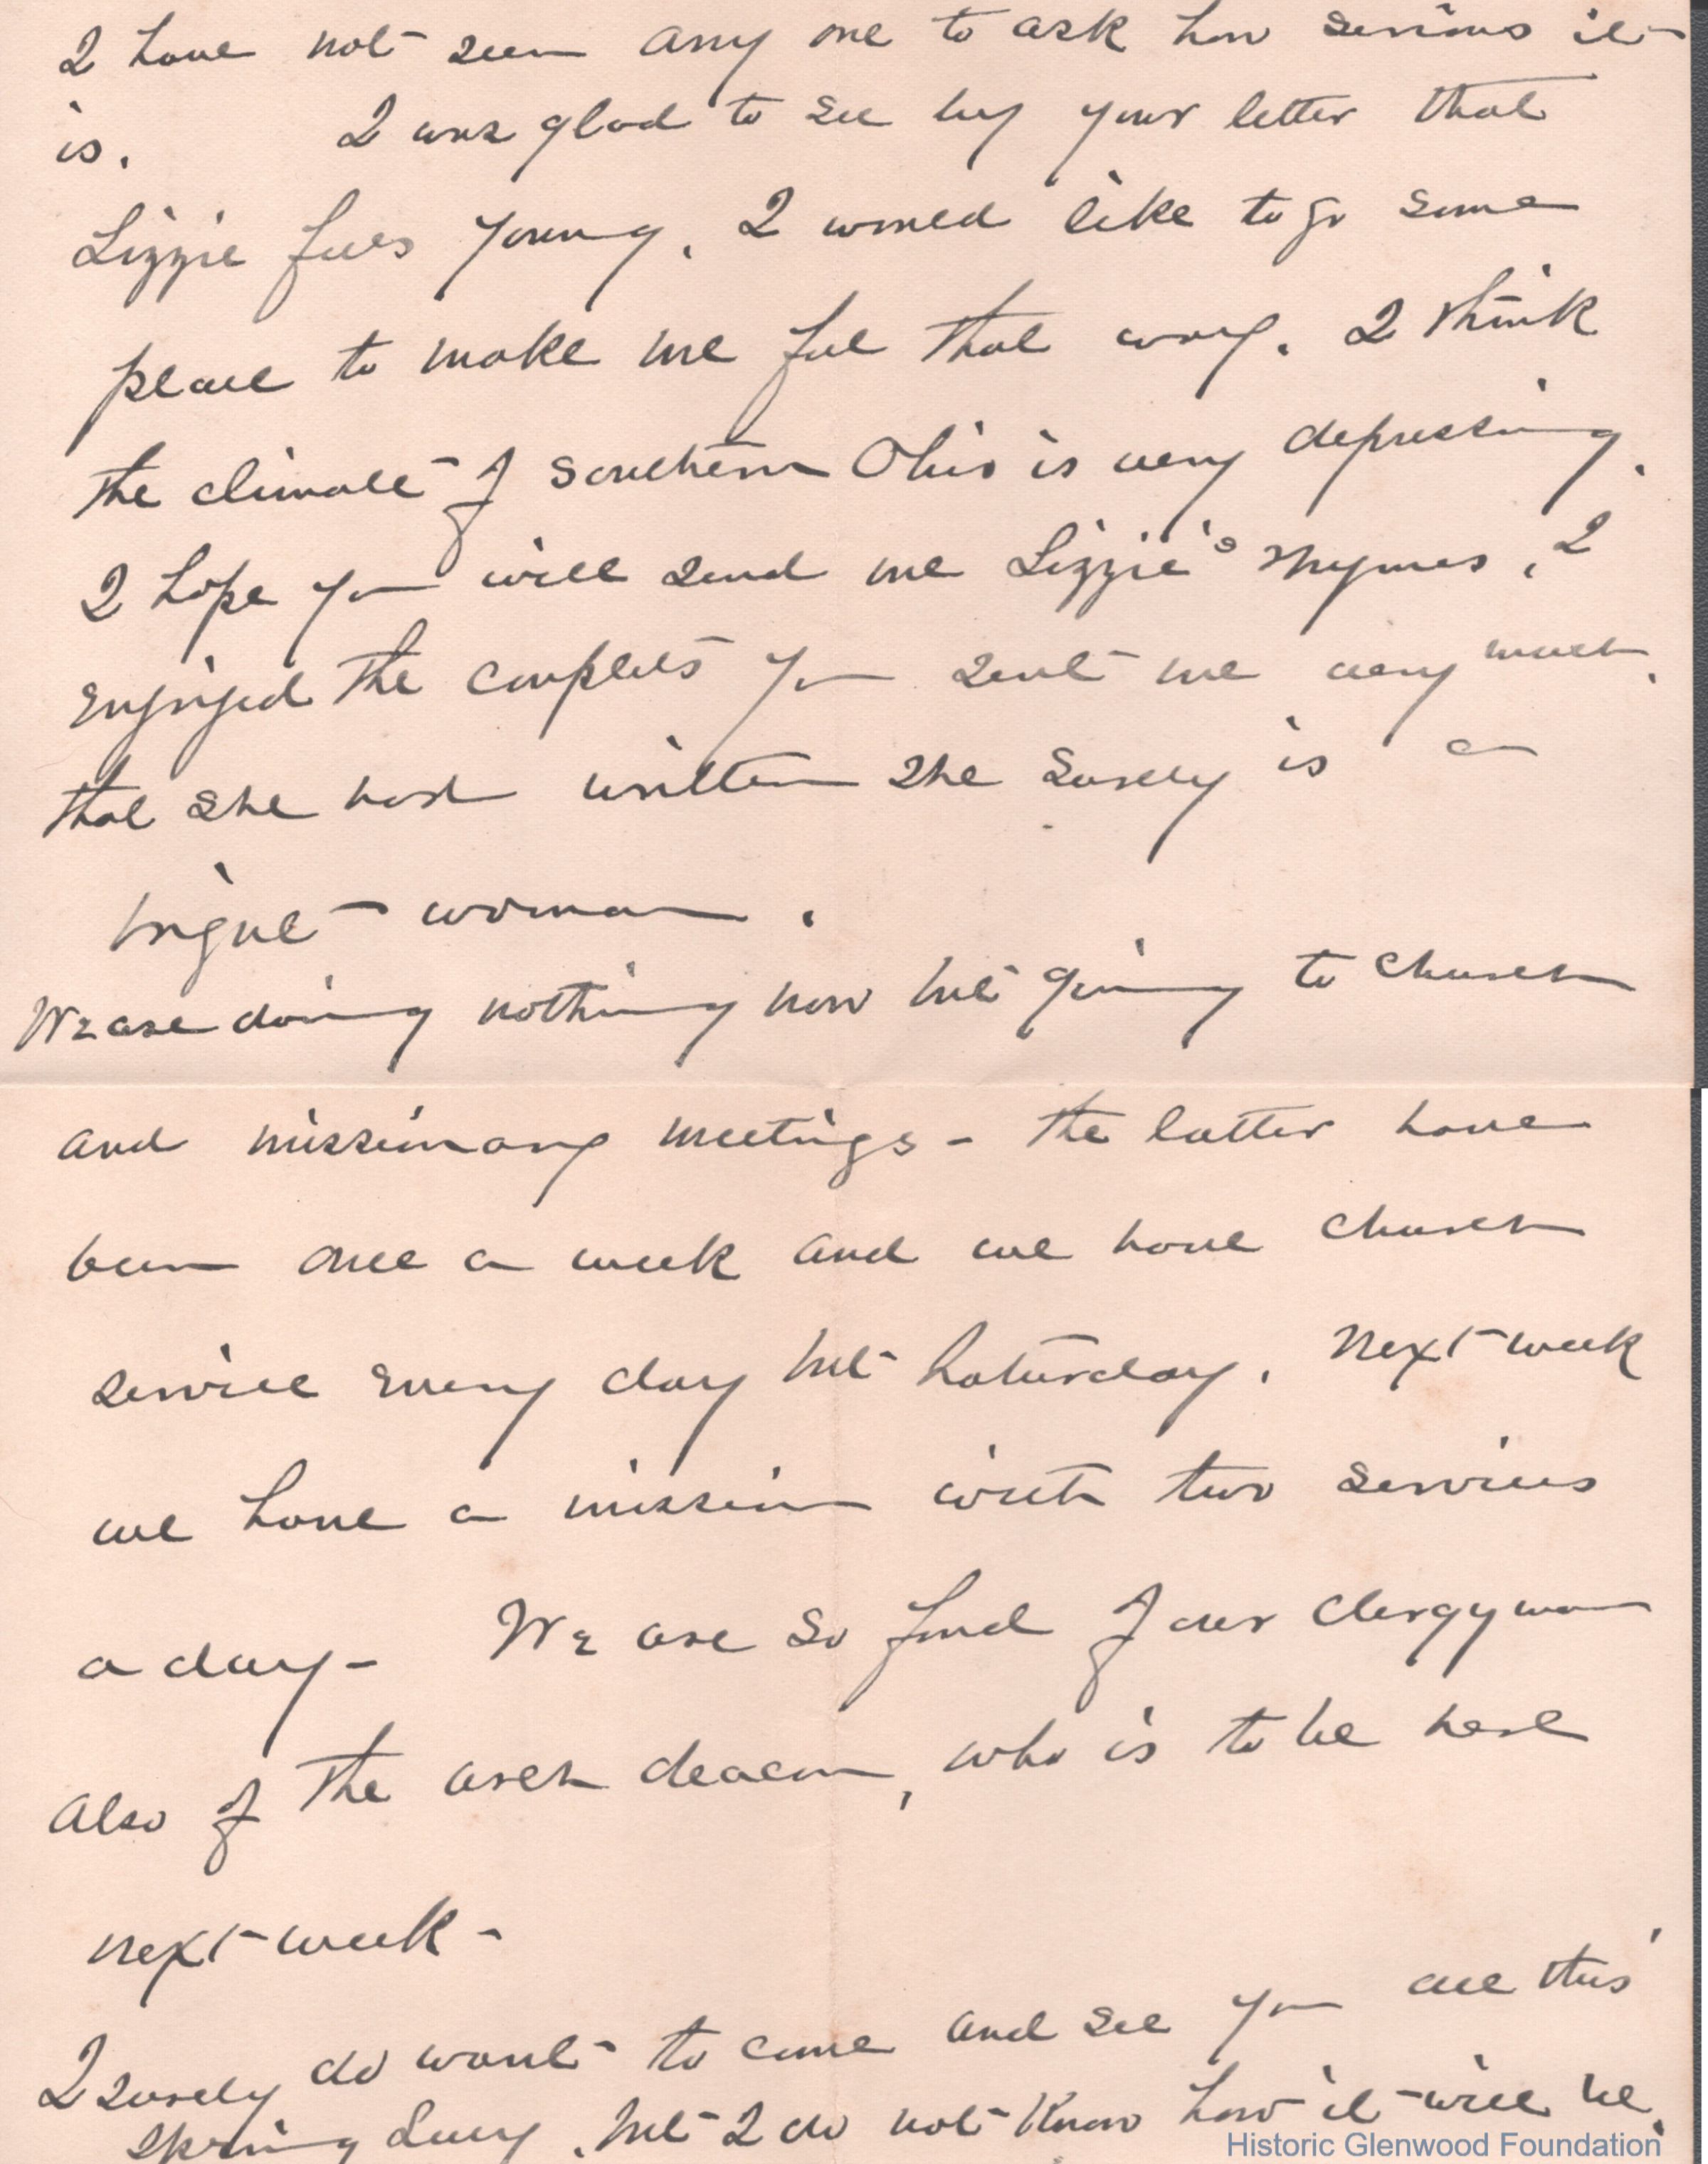 I have not seen any one to ask how serious it
is. I was glad to see by your letter that
Lizzie feels young. I would like to go some
place to make me feel that way. I think
the climate of southern Ohio is very depressing.
I hope you will send me Lizzie's rhymes, I
enjoyed the couplets you sent me very much.
that she had written She surely is a
bright woman.
We are doing nothing now but going to church
and missionary meetings - the latter have
been once a week and we have church
service every day but Saturday. Next week
we have a mission with two services
a day - We are so fond of our clergyman
also of the arch deacon, who is to be here
next week -
I surely do want to come and see you all this
spring Lucy, but I do not know how it will be.
Historic Glenwood Foundation